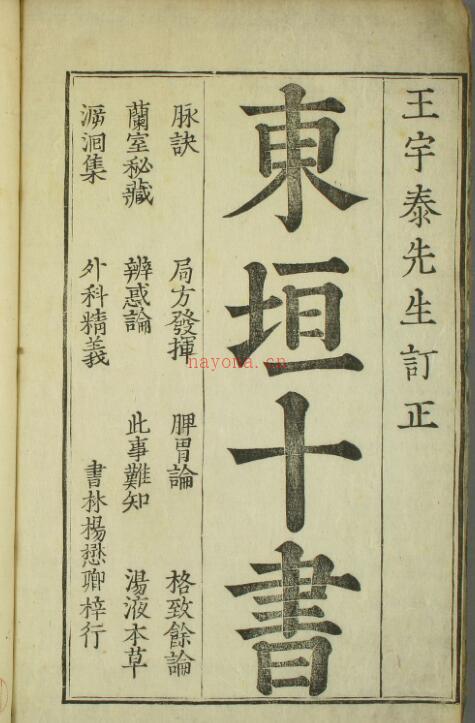 王宇泰先生訂正
東垣十書
脉訣 局方發揮 脾胃論 格致餘論
蘭室秘藏 辨惑論 此事難知 湯液本草
溯洄集 外科精義 書林楊懋卿梓行
nayona.cn